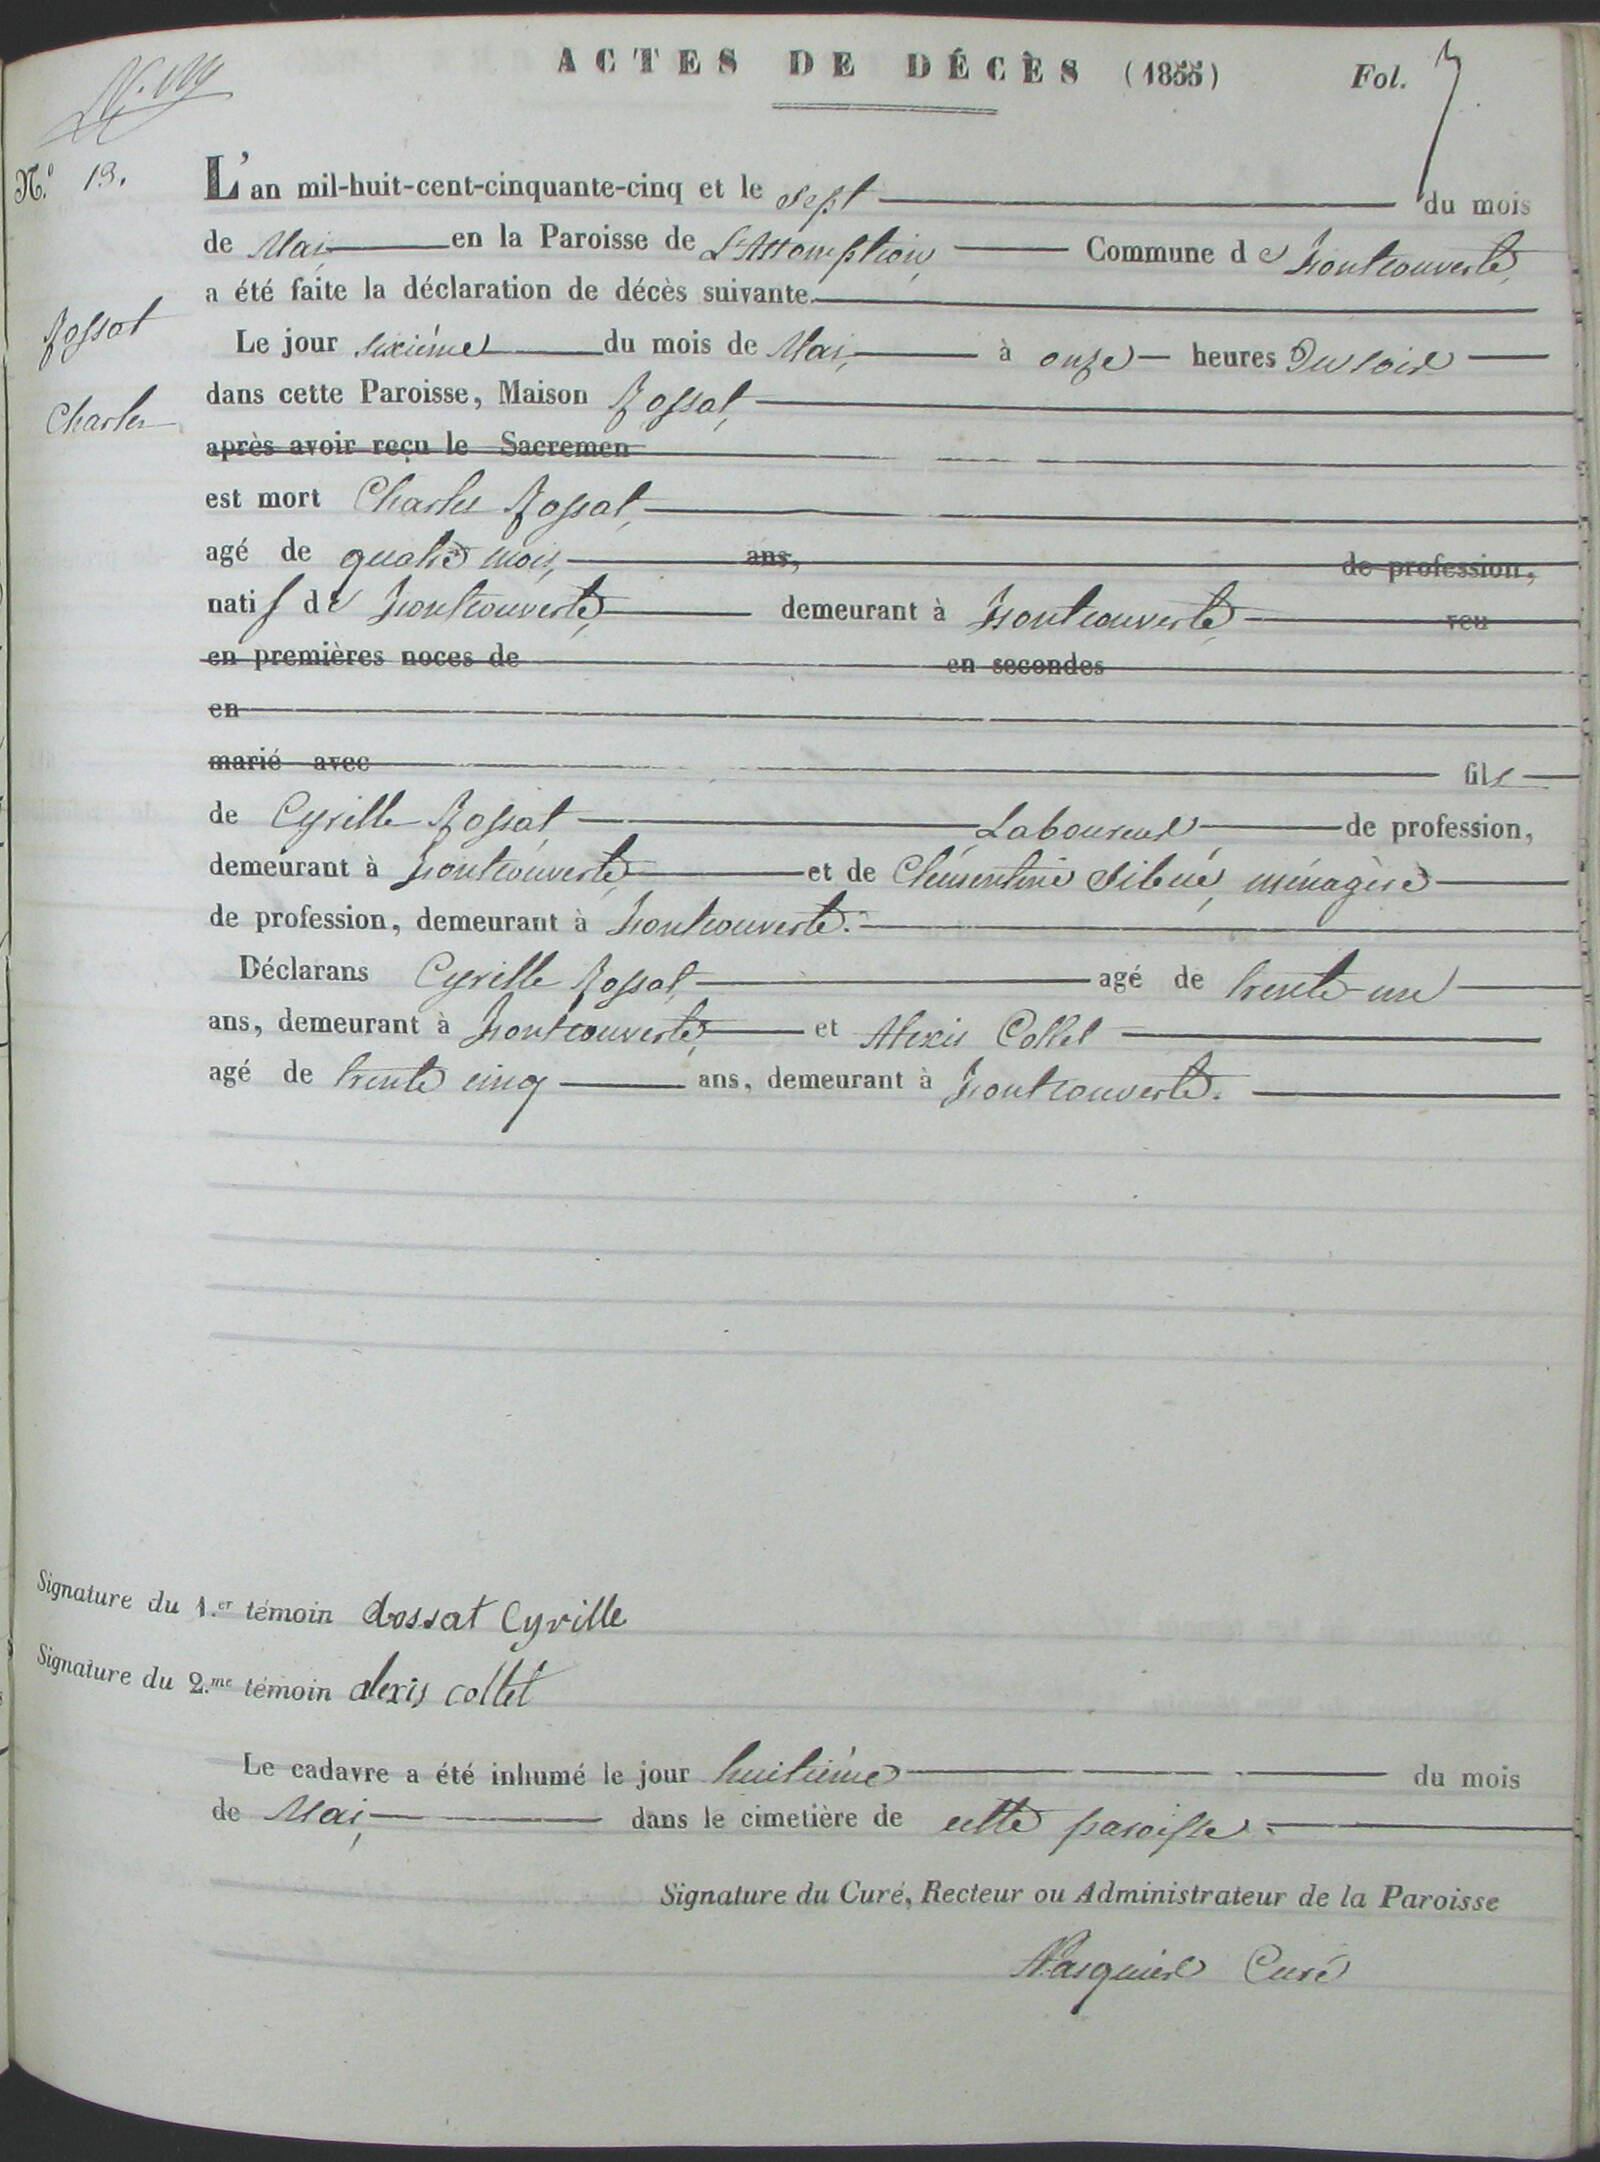 ACTES DE DÉCÈS (1855) Fol. 7
N.o 13.
L'an mil-huit-cent-cinquante-cinq et le sept du mois
de Mai en la Paroisse de L'Assomption, Commune de Fontcouverte,
a été faite la déclaration de décès suivante.
Rossat
Charles
Le jour sixième du mois de Mai, à onze heures du soir
dans cette Paroisse, Maison Rossat,
après avoir reçu le Sacremen
est mort Charles Rossat,
agé de quatre mois, ans, de profession,
natif de Fontcouverte, demeurant à Fontcouverte, veu
en premières noces de en secondes
en
marié avec fils
de Cyrille Rossat Laboureur de profession,
demeurant à Fontcouverte, et de Clémentine Sibué, ménagère
de profession, demeurant à Fontcouverte.
Déclarans Cyrille Rossat, agé de trente-un
ans, demeurant à Fontcouverte, et Alexis Collet
agé de trente cinq ans, demeurant à Fontcouverte.
Signature du 1.er témoin Rossat Cyrille
Signature du 2.me témoin alexis collet
Le cadavre a été inhumé le jour huitième du mois
de Mai, dans le cimetière de cette paroisse.
Signature du Curé, Recteur ou Administrateur de la Paroisse
Pasquier Curé